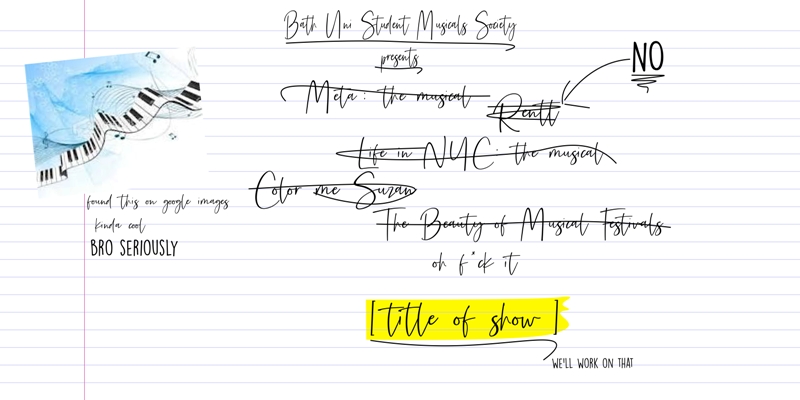 Bath Uni Student Musicals Society
presents
NO
Meta: the musical
Rentt
Life in NYC: the musical
Color me Suzan
found this on google images
kinda cool
BRO SERIOUSLY
The Beauty of Musical Festivals
oh f*ck it
[title of show]
WE'LL WORK ON THAT